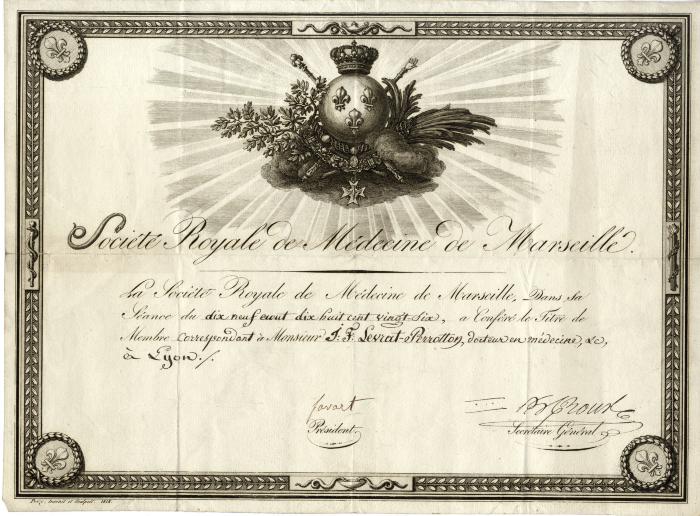 Société Royale de Médecine de Marseille.
La Société Royale de Médecine de Marseille, Dans sa
Séance du dix neuf aout dix huit cent vingt six, a Conféré le Titre de
Membre correspondant à Monsieur J. F. Levrat-Perrotton, docteur en médecine, &c,
à Lyon./.
favart
Président.
Secrétaire Général